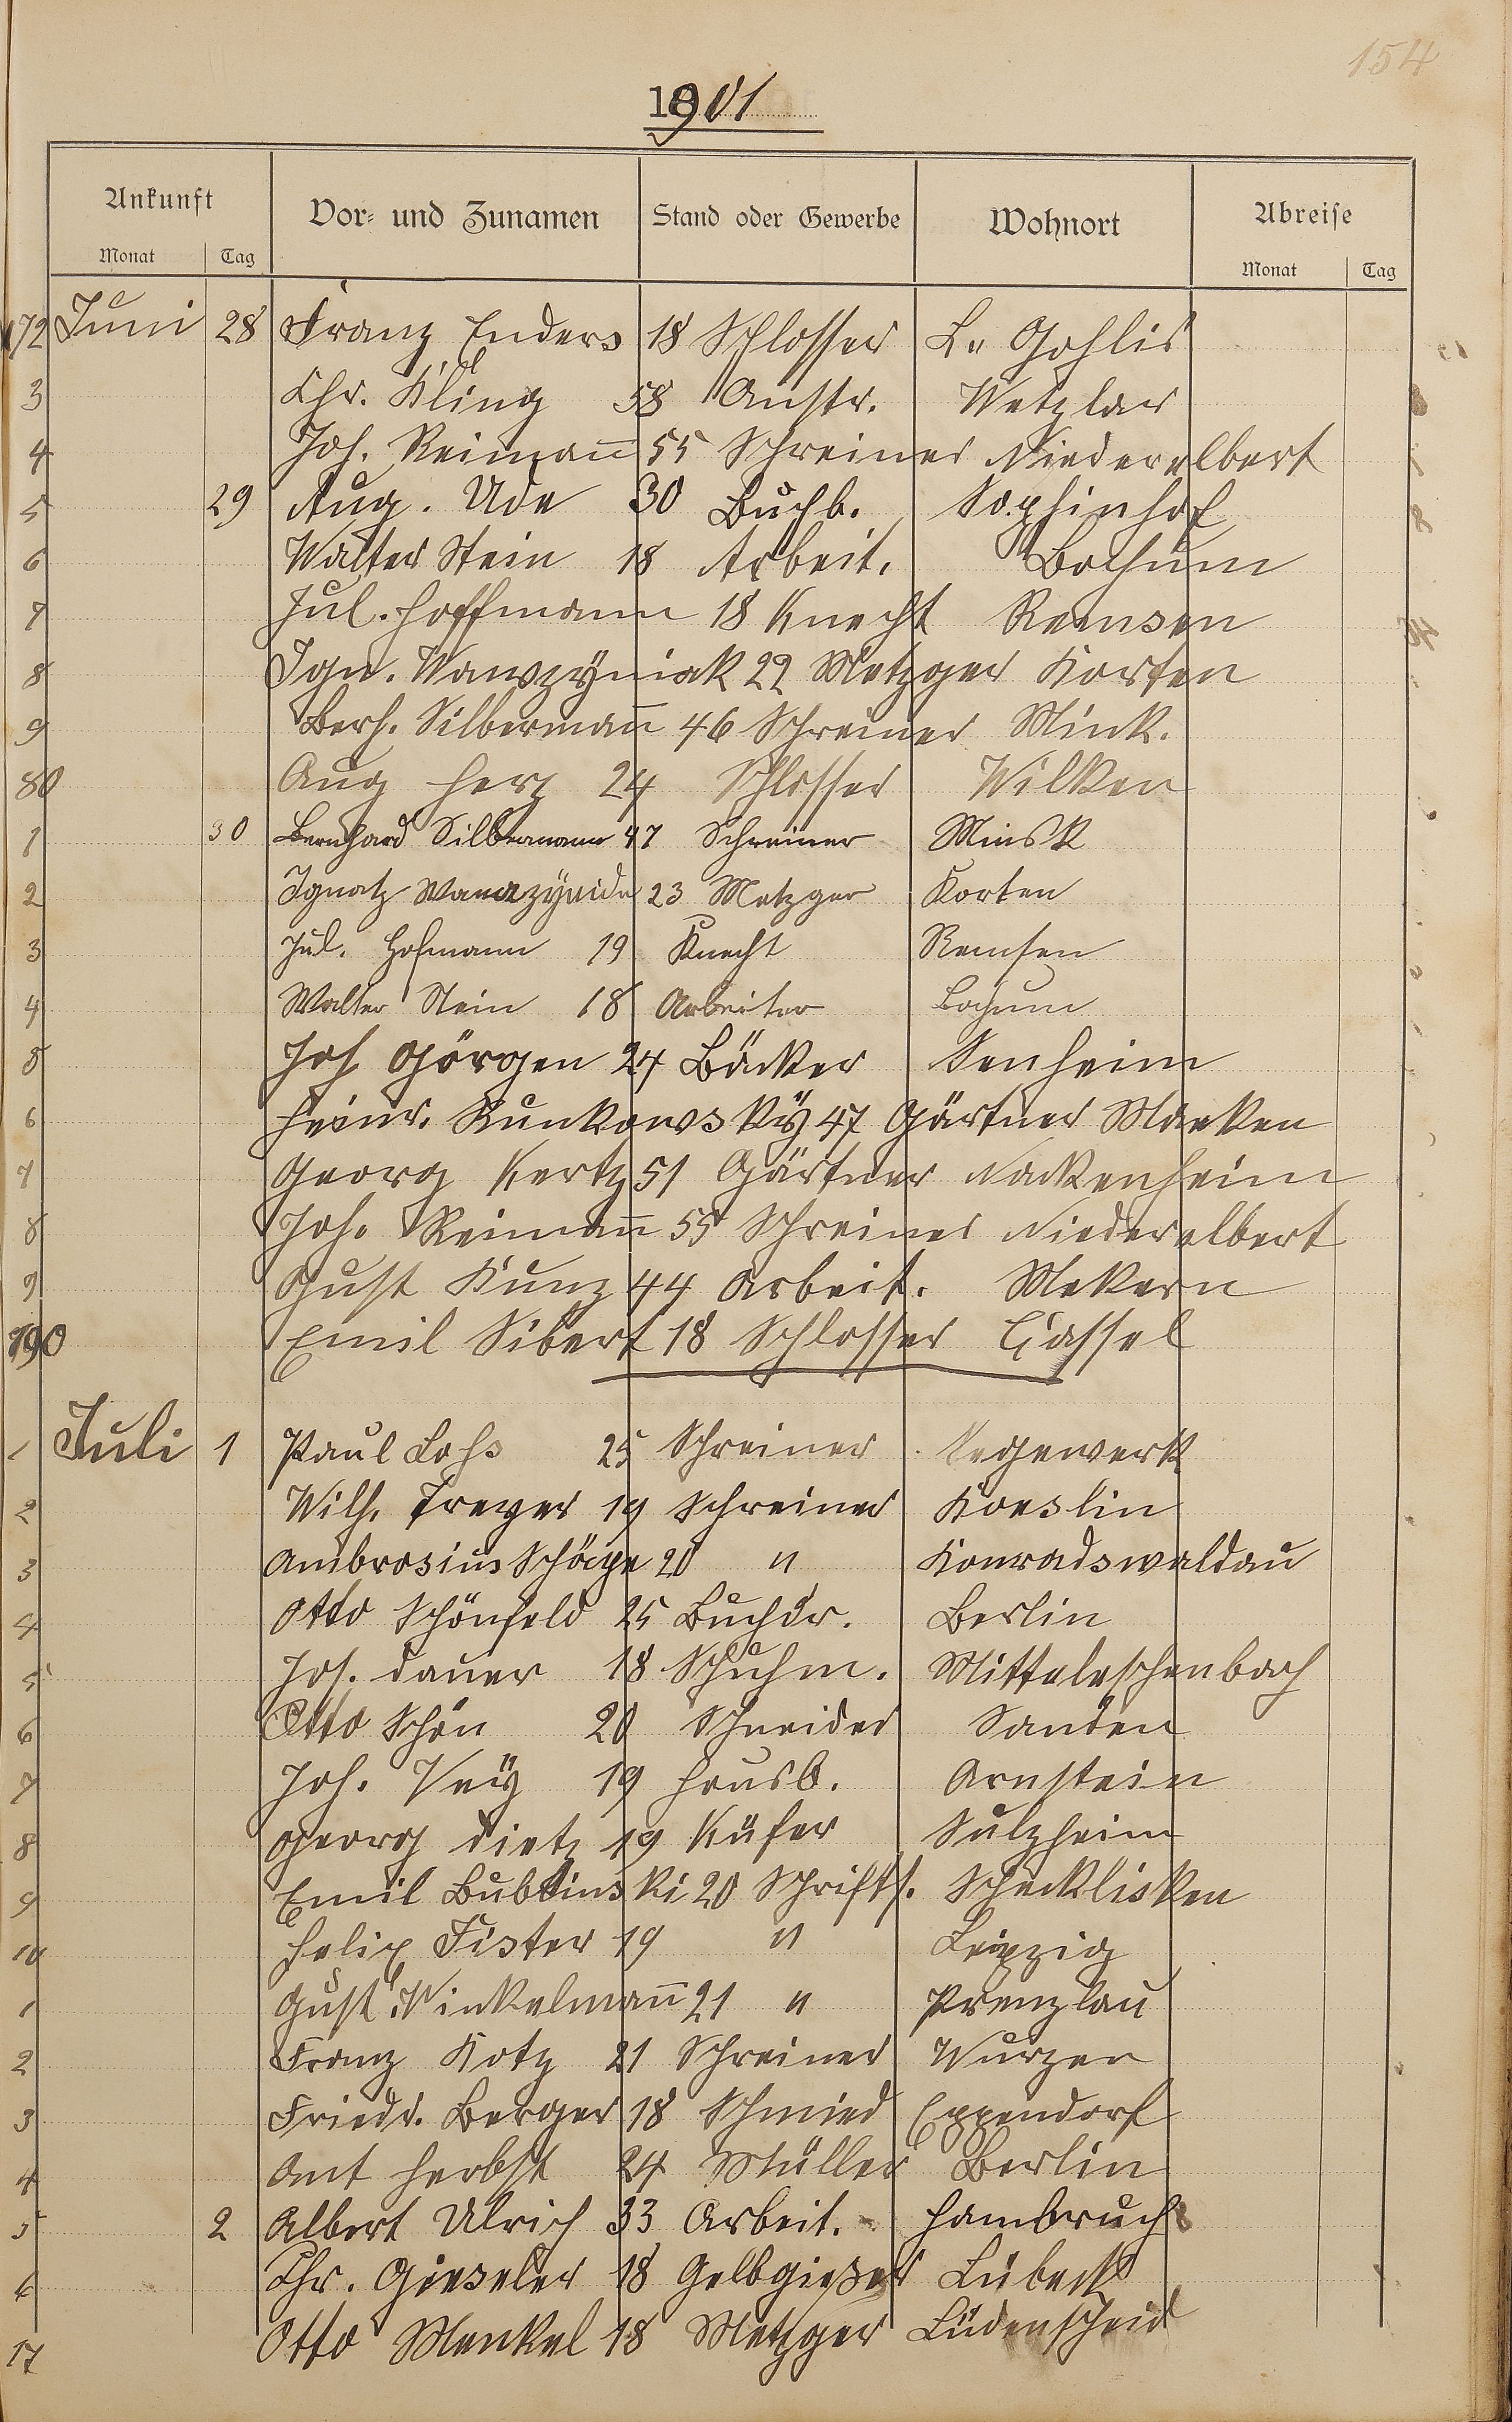 154
1901
Ankunft Vor- und Zunamen Stand oder Gewerbe Wohnort Abreise
Monat Tag Monat Tag
172 Juni 28 Franz Enders 18 Schlosser L. Gohlis
3 Chr. Kling 58 Anstr. Wetzlar
4 Joh. Reimann̄ 55 Schreiner Niederelbert
5 29 Aug. Ude 30 Buchb. Sophinhof
6 Walter Stein 18 Arbeit. Bochum
7 Jul. Hoffmann 18 Knecht Remsen
8 Ign. Wawzyniak 22 Metzger Korten
9 Berh. Silberman̄ 46 Schreiner Mink.
80 Aug Herz 24 Schlosser Wilken
1 30 Bernhard Silbermann 47 Schreiner Minsk
2 Ignatz 23 Metzger Korten
3 Jul. Hofmann 19 Knecht Remsen
4 Walter Stein 18 Arbeiter Bochum
5 Joh Görgen 24 Bäcker Senheim
6 Heinr. Runkowsky 47 Gärtner Maeken
7 Georg Kertz 51 Gärtner Nackenheim
8 Joh. Reiman̄ 55 Schreiner Niederelbert
9 Gust Kunz 44 Arbeit. Mekern
190 Emil Sibert 18 Schlosser Cassel
1 Juli 1 Paul Lohs 25 Schreiner
2 Wilh. Treger 19 Schreiner Koeslin
3 Ambrosius Schöpe 20 " Konradswaldau
4 Otto Schönfeld 25 Buchdr. Berlin
5 Jos. Dauer 18 Schuhm. Mitteleschenbach
6 Otto Schön 20 Schneider Sanden
7 Joh. Veÿ 19 Hausb. Arnstein
8 Georg Dietz 19 Küfer Sulzheim
9 Emil Bublinski 20 Schrifts. Schecklisken
10 Felix Fister 19 " Leipzig
1 Gust. Winkelman̄ 21 " Prenzlau
2 Franz Kotz 21 Schreiner Wurzen
3 Friedr. Berger 18 Schmied Eppendorf
4 Ant Herbst 24 Müller Berlin
5 2 Albert Ulrich 33 Arbeit. Hambruch
6 Chr. Gieseler 18 Gelbgießer Lübeck
17 Otto Menkel 18 Metzger Lüdenscheid